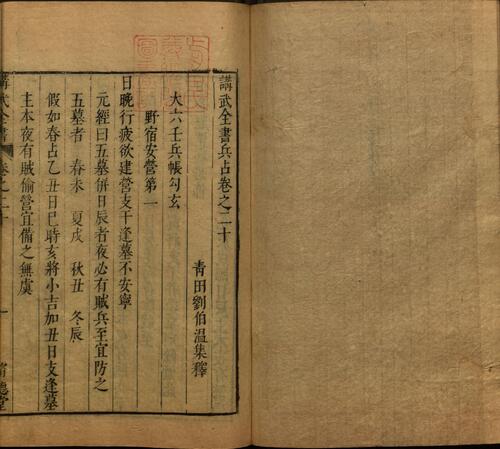 講武全書兵占卷之二十
青田劉伯温集釋
大六壬兵帳勾玄
野宿安營第一
日晚行疲欲建營支干逢墓不安寧
元經曰五墓併日辰者夜必有賊兵至宜防之
五墓者 春未 夏戌 秋丑 冬辰
假如春占乙丑日巳時亥將小吉加丑日支逢墓
主本夜有賊偷營宜備之無虞
講武全書 卷之二十 一